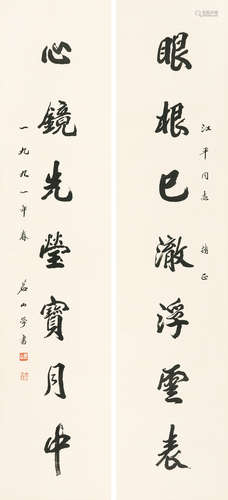 眼根已澈浮雲表
江平同志 補正
心鏡先瑩寶月中
一九九一年春
若山學書